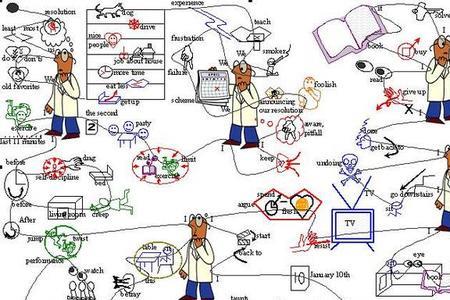 resolution
least most
do don't
We
old favorites
exercise
last 11 minutes
dog
drive
nice
people
job about house
more time
eat less
get up
the second
2
party
experience
frustration
failure
scheme
teach
smokers
announcing
our resolution
I
foolish
aware,
pitfall
keep
it
solve
book
buy
read
give up
X
done
get back to
undoing
go downstairs
sit
TV
TV
before
self-discipline
drag
bed
before
living room
creep
After
jump
twist
performance
watch
betray
table
this
read
exercise
diet
spend
argue
this is
resist
start
back to
I
10
January 10th
eye
book